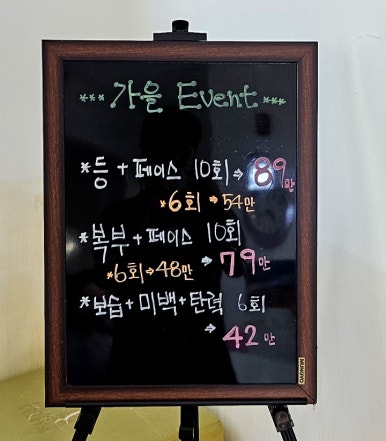 *** 가을 Event ***
*등 + 페이스 10회 ⇒ 89만
*6회 ⇒ 54만
*복부 + 페이스 10회
*6회 ⇒ 48만 ⇒ 79만
*보습 + 미백 + 탄력 6회
⇒ 42만